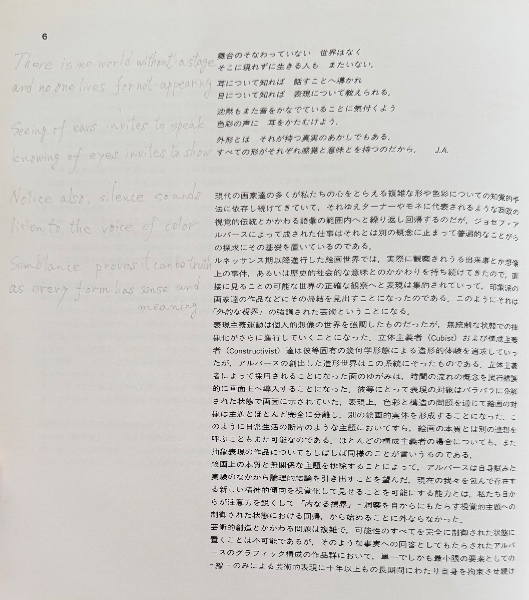 6
There is no world without a stage
and no one lives for not-appearing
Seeing of ears invites to speak
knowing of eyes invites to show
Notice also, silence sounds
listen to the voice of color
Semblance proves it can be truth
as every form has sense and
meaning
舞台のそなわっていない 世界はなく
そこに現れずに生きる人も またいない。
耳について知れば 話すことへ導かれ
目について知れば 表現について教えられる。
沈黙もまた音をかなでていることに気付くよう
色彩の声に 耳をかたむけよう。
外形とは それが持つ真実のあかしでもある。
すべての形がそれぞれ感覚と意味とを持つのだから。 J.A.
現代の画家達の多くが私たちの心をとらえる複雑な形や色彩についての知覚的手
法に依存し続けてきていて、それゆえターナーやモネに代表されるような西欧の
視覚的伝統とかかわる語彙の範囲内へと繰り返し回帰するのだが、ジョセフ・ア
ルバースによって成された仕事はそれとは別の概念に止まって普遍的なことがら
の探求にその基礎を置いているのである。
ルネッサンス期以降進行した絵画世界では、実際に観察されうる出来事とか想像
上の事件、あるいは歴史的社会的な意味とのかかわりを持ち続けてきたので、直
接に見ることの可能な世界の正確な観察へと表現は集約されていって、印象派の
画家達の作品などにその帰結を見出すことになったのである。このようにそれは
「外的な視界」の強調された芸術ということになる。
表現主義運動は個人的想像の世界を強調したものだったが、無統制な状態での抽
象化がさらに進行していくことになった。立体主義者（Cubist）および構成主義
者（Constructivist）達は彼等固有の幾何学形態による造形的体験を追求していっ
たが、アルバースの創出した造形世界はこの系統にそったものである。立体主義
者によって採用されることになった面のゆがみは、時間の流れの概念を試行錯誤
的に画面上へ導入することになった。彼等にとって表現の対象はバラバラに分割
された状態で画面に示されていた。表現上、色彩と構造の問題を通じて絵画の対
象は主題とほとんど完全に分離し、別の絵画的実体を形成することになった。こ
のように日常生活の断片のような主題においてすら、絵画の本質とは別の連想を
呼ぶこともまた可能なのである。ほとんどの構成主義者の場合についても、また
抽象表現の作品についてもしばしば同様のことが言いうるのである。
絵画上の本質と無関係な主題を排除することによって、アルバースは自身試みた
実験のなかから論理的結論を引き出すことを望んだ。現在の我々を包んで存在す
る新しい精神的傾向を視覚化して見せることを可能にする能力とは、私たち自か
らが注意力を鋭くして「内なる視界」-洞察を自からにもたらす視覚的主題への
制御された状態における回帰、から始めることに外ならなかった。
芸術的創造とかかわる問題は複雑で、可能性のすべてを完全に制御された状態に
置くことは不可能であるが、そのような事実への回答としてもたらされたアルバ
ースのグラフィック構成の作品群において、単一でしかも最小限の要素としての
-線-のみによる芸術的表現に十年以上もの長期間にわたり自身を拘束させ続け